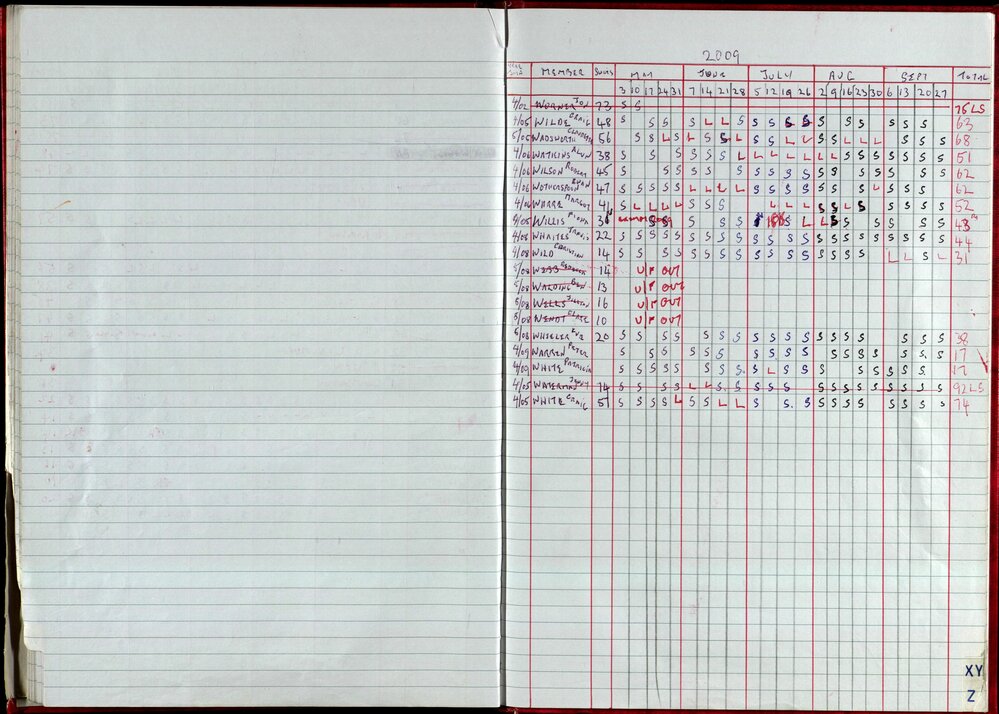 2009
MEMBER SWIMS MAY JUNE JULY AUG SEPT TOTAL
3 10 17 24 31 7 14 21 28 5 12 19 26 2 9 16 23 30 6 13 20 27
4/02 WORNER JON 73 S S 75 LS
4/05 WILDE CRAIG 48 S S S S L L S S S S S S S S S S S 63
5/05 WADSWORTH 56 S S L S L S S L S S L L S S L L L S S S 68
4/06 WATKINS ALUN 38 S S S S S S L L L L L L L S S S S S S S 51
4/06 WILSON ROBERT 45 S S S S S S S S S S S S S S S S S 62
4/06 WOTHERSPOON EUAN 47 S S S S S L L L L S S S S S S S L S S S 62
4/06 WARRE MARGOT 41 S L L L L S S S L L L S S L S 52
9/05 WILLIS FIONA 48
4/08 WHAITES TRAVIS 22 S S S S S S S S S S S S S S S S S S S S S S 44
4/08 WILD CHRISTIAN 14 S S S S S S S S S S S S S S S S L L S L 31
5/08 WEBB 14 U/F OUT
5/08 WALDING BEN 13 U/F OUT
5/08 WELLS 16 U/F OUT
5/08 WENDT CLARE 10 U/F OUT
5/08 WHEELER EVE 20 S S S S S S S S S S S S S S S S S S 38
4/09 WARREN PETER S S S S S S S S S S S S S S S S S 17
4/09 WHITE PATRICIA S S S S S S S S S L S S S S S S S 17
4/05 WATERMAN JENNY 74 S S S S L L S S S S S S S S S S S S S S 92 LS
4/05 WHITE CRAIG 57 S S S S L S S L L S S S S S S S S S S S 74
XY
Z